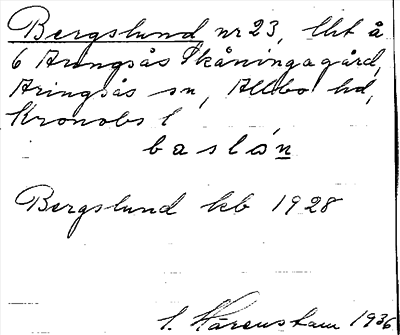 Bergslund nr 23, lht å
6 Aringsås Skåningagård,
Aringsås sn, Allbo hd,
Kronobs l
baslón
Bergslund kb 1928
1936